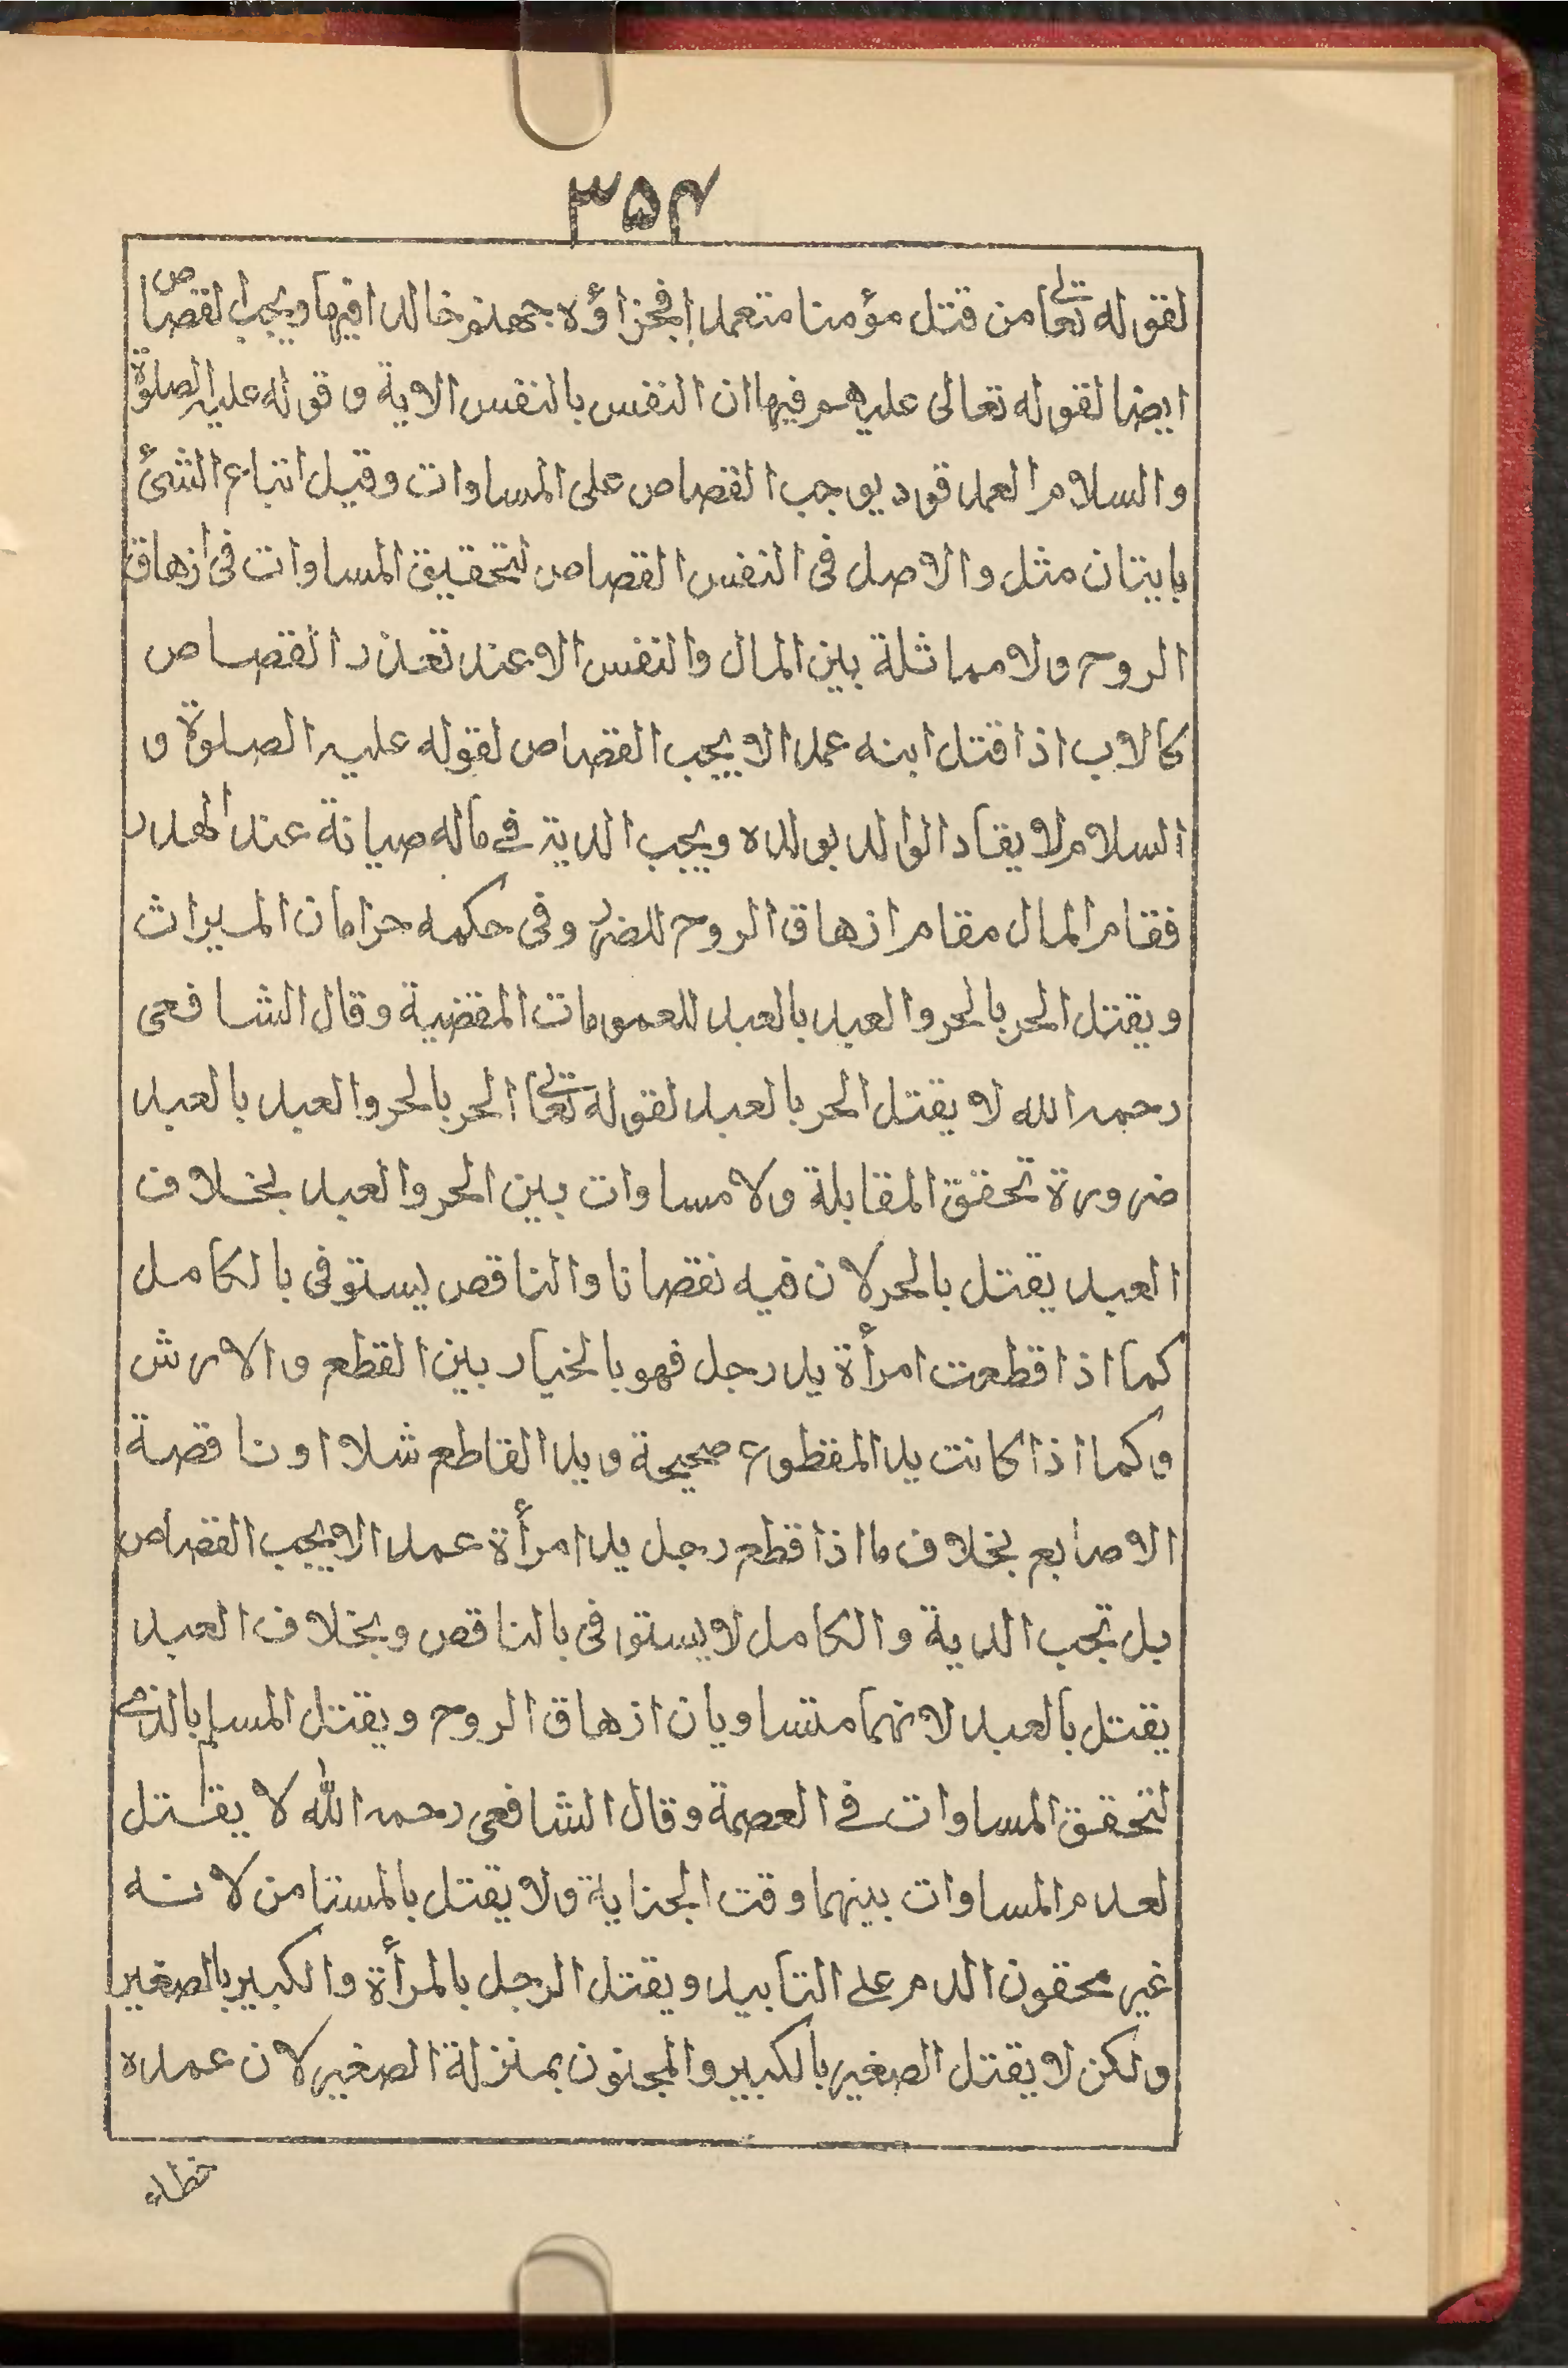 ۳۵۴
لقوله تعالى من قتل مؤمنا متعمدا فجزاؤه جهنم خالدا فيها ويجب القصاص
ايضا لقوله تعالى عليهم فيها ان النفس بالنفس الاية و قوله عليه الصلوة
والسلام العمد قود يوجب القصاص على المساوات وقيل اتباع الشئ
باتيان مثل والاصل فى النفس القصاص لتحقيق المساوات فى ازهاق
الروح ولا مماثلة بين المال والنفس الا عند تعذر القصاص
كالاب اذا قتل ابنه عمدا لا يجب القصاص لقوله عليه الصلوة و
السلام لا يقاد الوالد بولده ويجب الدية فى ماله صيانة عند الهدر
فقام المال مقام ازهاق الروح للضرر وفى حكمه حرامان الميراث
ويقتل الحر بالحر والعبد بالعبد للعمومات المقضية وقال الشافعى
رحمه الله لا يقتل الحر بالعبد لقوله تعالى الحر بالحر والعبد بالعبد
ضرورة تحقق المقابلة ولا مساوات بين الحر والعبد بخلاف
العبد يقتل بالحر لان فيه نقصانا والناقص يستوفى بالكامل
كما اذا قطعت امرأة يد رجل فهو بالخيار بين القطع والارش
وكما اذا كانت يد المقطوع صحيحة ويد القاطع شلا او ناقصة
الاصابع بخلاف ما اذا قطع رجل يد امرأة عمدا لا يجب القصاص
بل تجب الدية والكامل لا يستوفى بالناقص وبخلاف العبد
يقتل بالعبد لانهما متساويان ازهاق الروح ويقتل المسلم بالذمى
لتحقق المساوات فى العصمة وقال الشافعى رحمه الله لا يقتل
لعدم المساوات بينهما وقت الجناية ولا يقتل بالمستامن لانه
غير محقون الدم على التابيد ويقتل الرجل بالمرأة والكبير بالصغير
ولكن لا يقتل الصغير بالكبير والمجنون بمنزلة الصغير لان عمده
خطاء